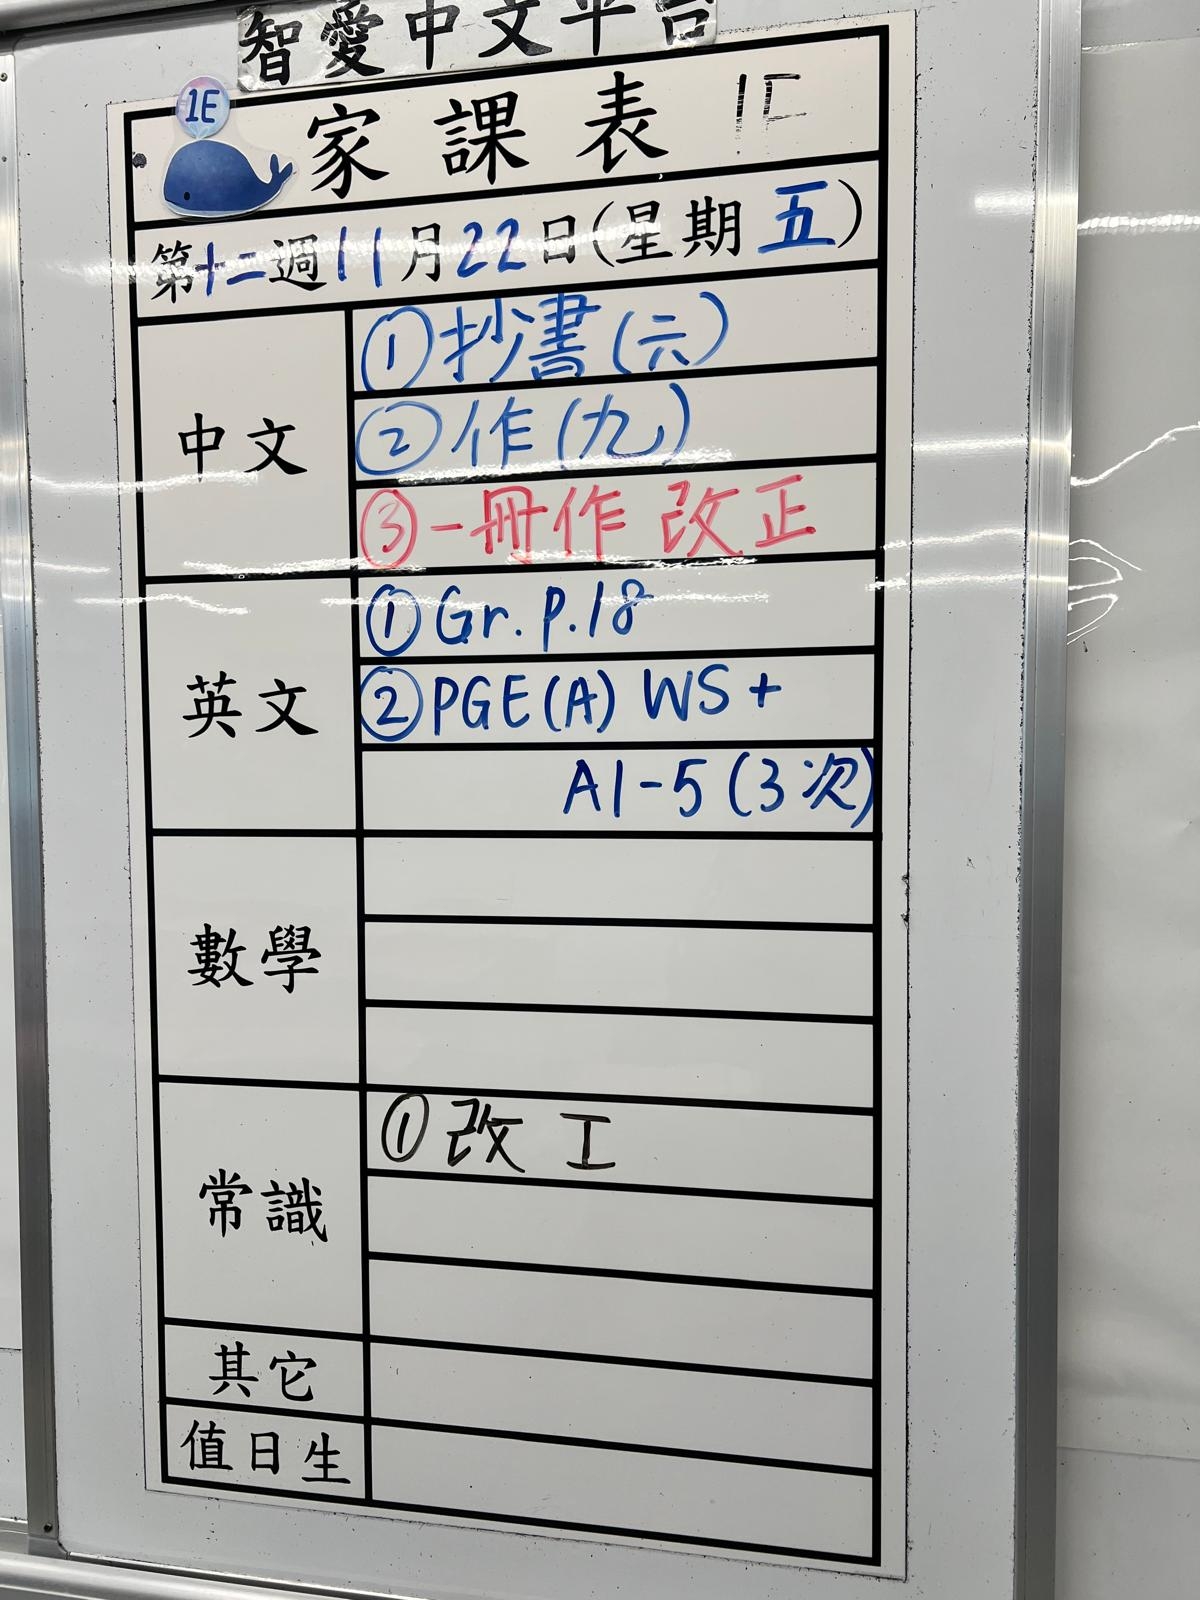 智愛中文平台
1E
家課表
第十二週11月22日(星期五)
中文
①抄書(六)
②作(九)
③一冊作 改正
英文
①Gr. P.18
②PGE(A) WS +
A1-5(3次)
數學
常識
①改 工
其它
值日生